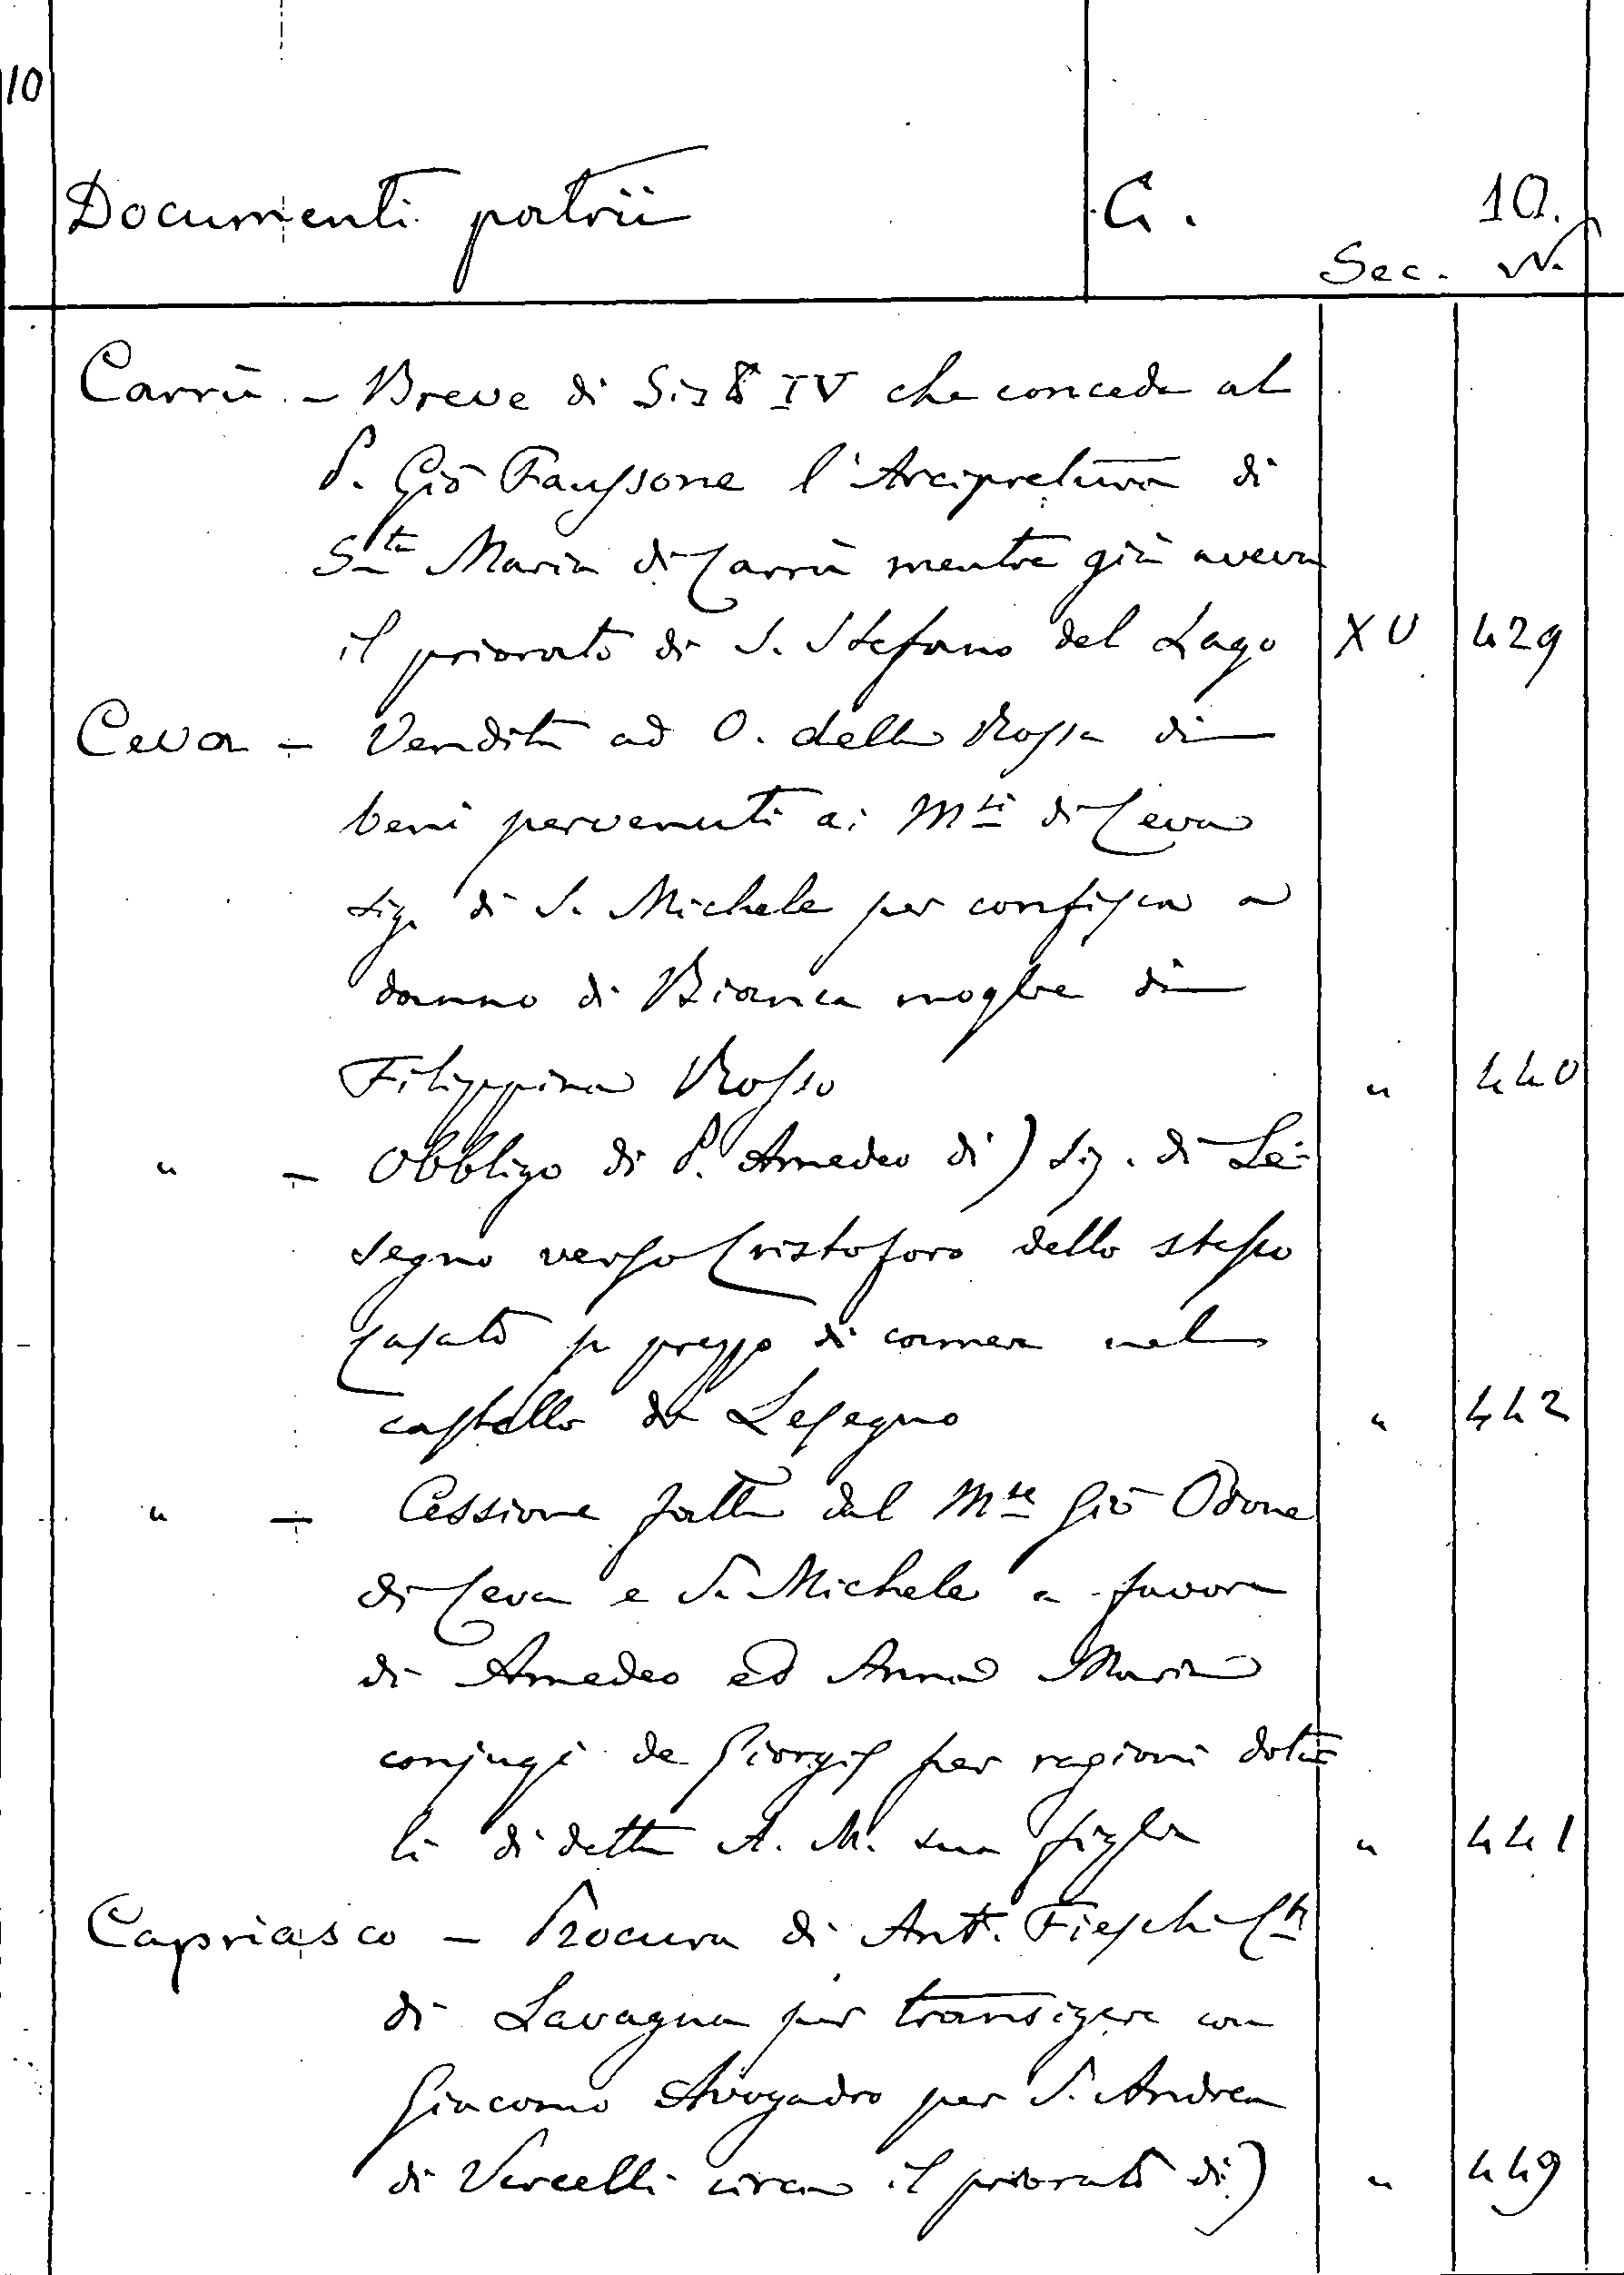 10
Documenti patrii C. 10.
Sec. N.
Carrù - Breve di Sisto IV che concede al
P. Giò Faussone l'Arcipretura di
Sta Maria di Carrù mentre già aveva
il priorato di S. Stefano del Lago XV 429
Ceva - Vendita ad O. della Rossa di
beni pervenuti ai Msi di Ceva
sig. di S. Michele per confisca a
danno di Bianca moglie di
Filippino Rosso " 440
" - Obbligo di P. Amedeo di) sig. di Le-
segno verso Cristoforo dello stesso
Casato p prezzo di camera nel
castello di Lesegno " 442
" - Cessione fatta dal Mse Giò Odone
di Ceva e S. Michele a favore
di Amedeo ed Anna Maria
conjugi de Giorgis per ragioni dota=
li di detta A. M. sua figlia " 441
Capriasco - Procura di Ant. Fieschi Cti
di Lavagna per transigere con
Giacomo Avogadro per S. Andrea
di Vercelli circa il priorato di) " 449